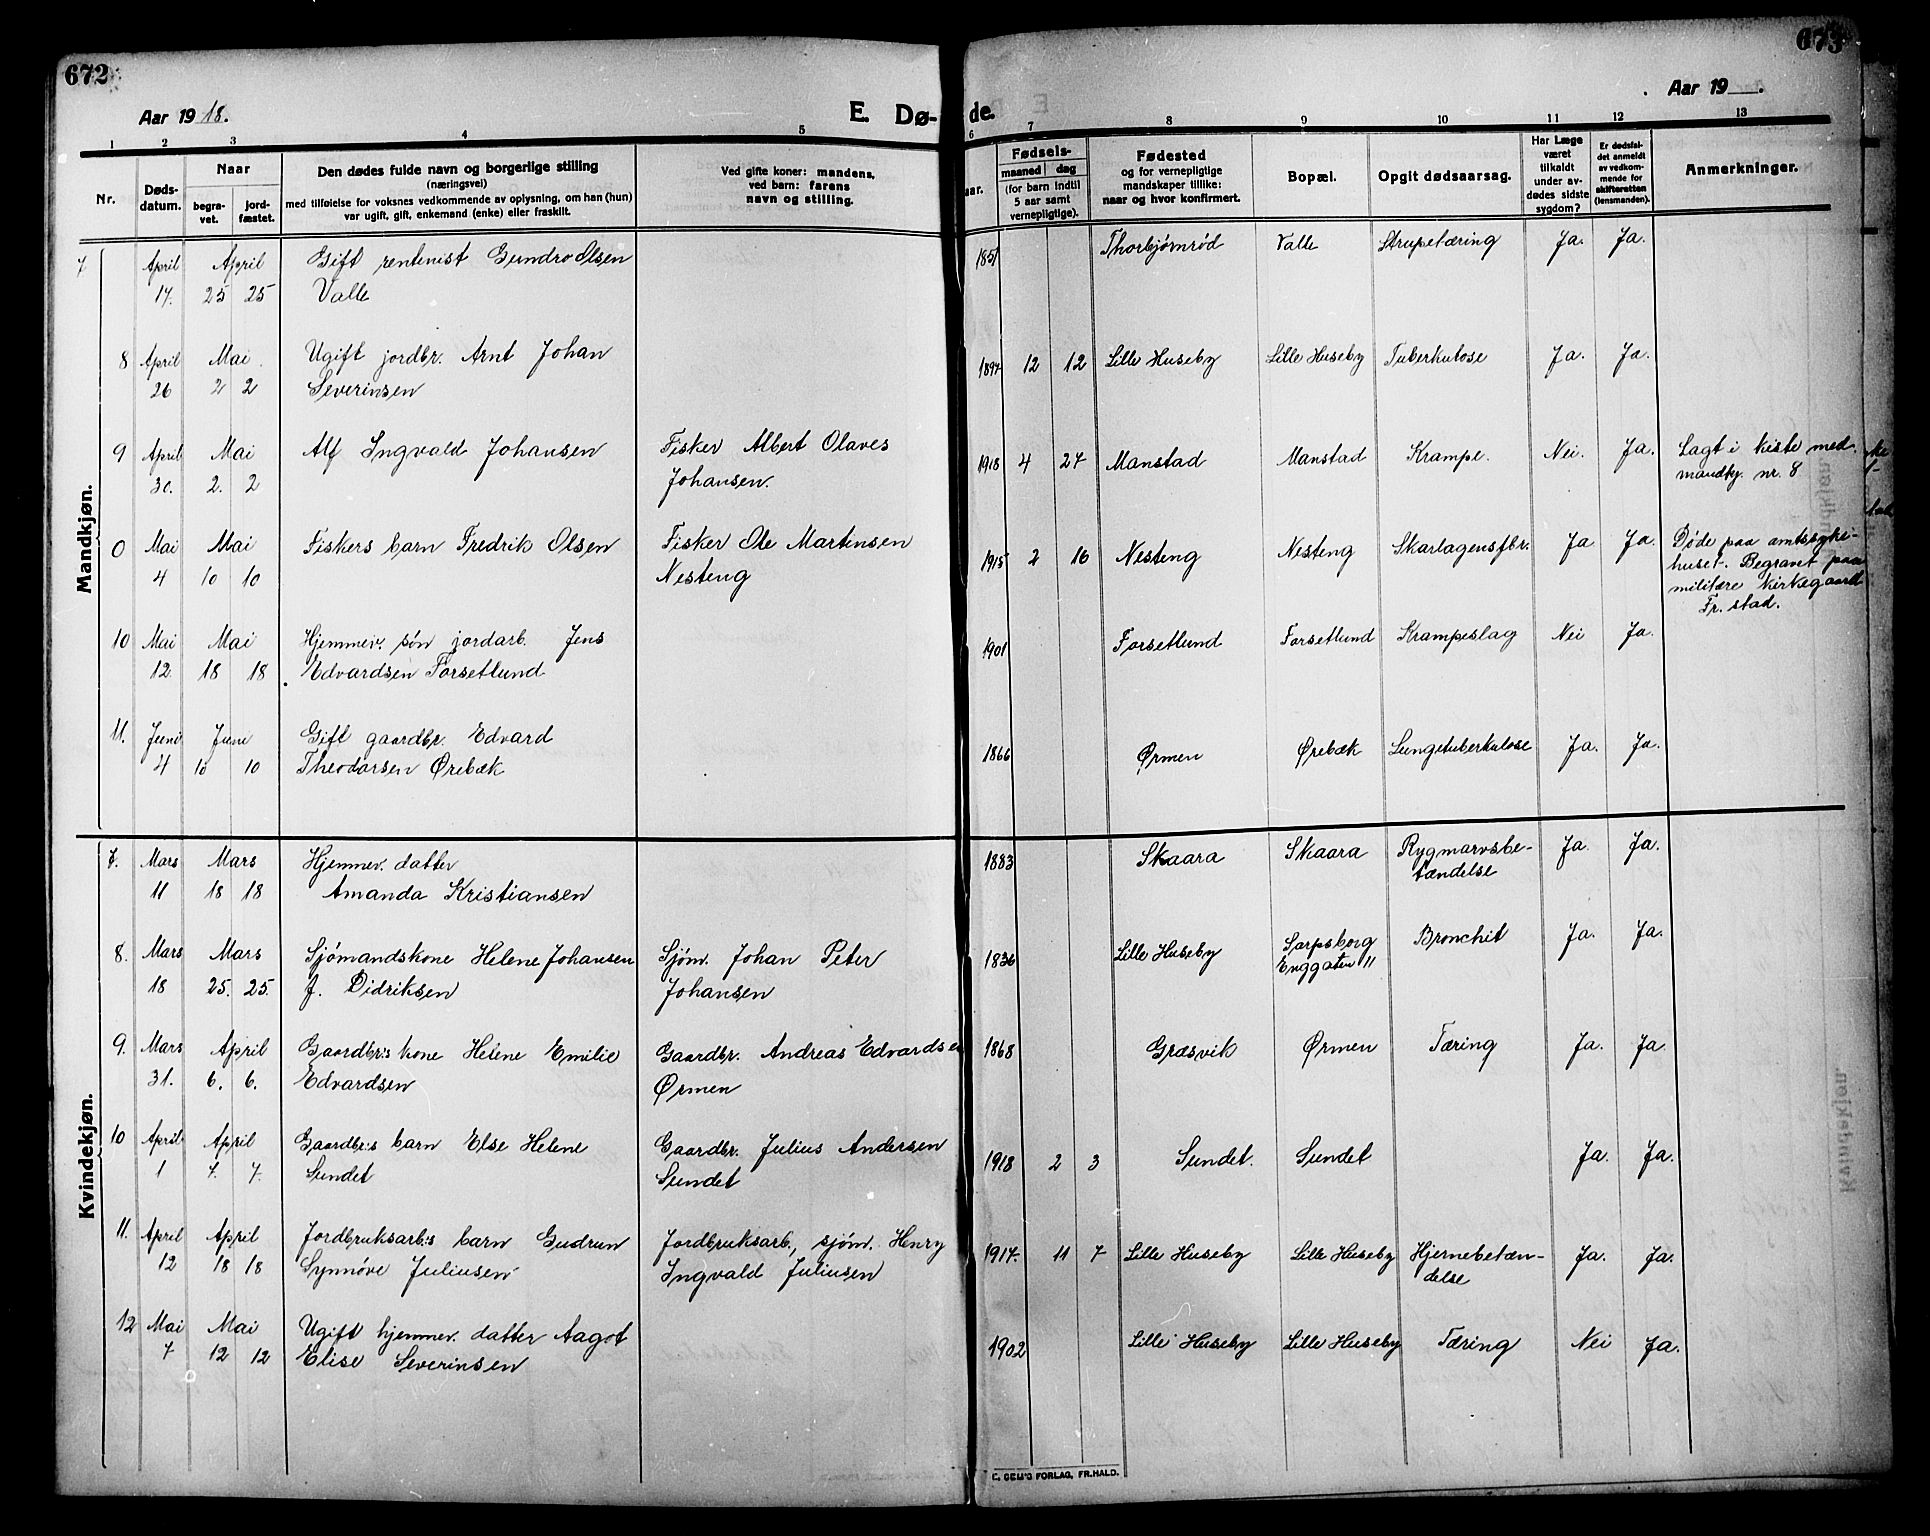 672
673
Aar 19 18.
E. Dø-
de.
Aar 19 .
1 2 3 4 5 6 7 8 9 10 11 12 13
Nr.
Døds-
datum.
Naar
begra-
vet.
jord-
fæstet.
Den dødes fulde navn og borgerlige stilling
(næringsvei)
med tilføielse for voksnes vedkommende av oplysning, om han (hun)
var ugift, gift, enkemand (enke) eller fraskilt.
Ved gifte koner: mandens,
ved barn: farens
navn og stilling.
aar.
Fødsels-
maaned dag
(for barn indtil
5 aar samt
vernepligtige).
Fødested
og for vernepligtige
mandskaper tillike:
naar og hvor konfirmert.
Bopæl.
Opgit dødsaarsag.
Har Læge
været
tilkaldt
under av-
dødes sidste
sygdom?
Er dødsfal-
det anmeldt
av vedkom-
mende for
skifteretten
(lensmanden).
Anmerkninger.
Mandkjøn.
7 April April Gift rentenist Gundro Olsen 1851 Thorbjørnrød Valle Strupetæring Ja. Ja.
17. 25 25 Valle
8 April Mai Ugift jordbr. Arnt Johan 1897 12 12 Lille Huseby Lille Huseby Tuberkulose Ja. Ja.
26 2 2 Severinsen
9 April Mai Alf Ingvald Johansen Fisker Albert Olaves 1918 4 27 Manstad Manstad Krampe. Nei. Ja. Lagt i kiste med
30. 2. 2 Johansen. mandkj. nr. 8
0 Mai Mai Fiskers barn Fredrik Olsen Fisker Ole Martinsen 1915 2 16 Nesteng Nesteng Skarlagensfbr. Ja Ja. Døde paa amtssyke-
4 10 10 Nesteng huset. Begravet paa
militære kirkegaard
Fr. stad.
10 Mai Mai Hjemmev. søn jordarb. Jens 1901 Forsetlund Forsetlund Krampeslag Nei Ja.
12. 18 18 Edvardsen Forsetlund
11. Juni June Gift gaardbr. Edvard 1866 Ørmen Ørebæk Lungetuberkulose Ja. Ja.
4 10 10 Theodorsen Ørebæk
Kvindekjøn.
7. Mars Mars Hjemmev. datter 1883 Skaara Skaara Rygmarvsbe- Ja. Ja.
11 18 18 Amanda Kristiansen tændelse
8. Mars Mars Sjømandskone Helene Johansen Sjøm. Johan Peter 1836 Lille Huseby Sarpsborg Bronchit Ja. Ja.
18 25. 25. f. Didriksen Johansen Enggaten 11
9. Mars April Gaardbr:s kone Helene Emilie Gaardbr. Andreas Edvardsen 1868 Græsvik Ørmen Tæring Ja. Ja.
31. 6. 6. Edvardsen Ørmen
10 April April Gaardbr:s barn Else Helene Gaardbr. Julius Andersen 1918 2 3 Sundet. Sundet Ja. Ja.
1 7. 7. Sundet Sundet
11. April April Jordbruksarb:s barn Gudrun Jordbruksarb., sjøm. Henry 1917. 11 7 Lille Huseby Lille Huseby Hjernebetæn- Ja. Ja.
12 18 18 Synnøve Juliusen Ingvald Juliusen delse
12 Mai Mai Ugift hjemmev. datter Aagot 1902 Lille Huseby Lille Huseby Tæring Nei Ja.
7 12 12 Elise Severinsen
E. SEM'S FORLAG, FR.HALD.